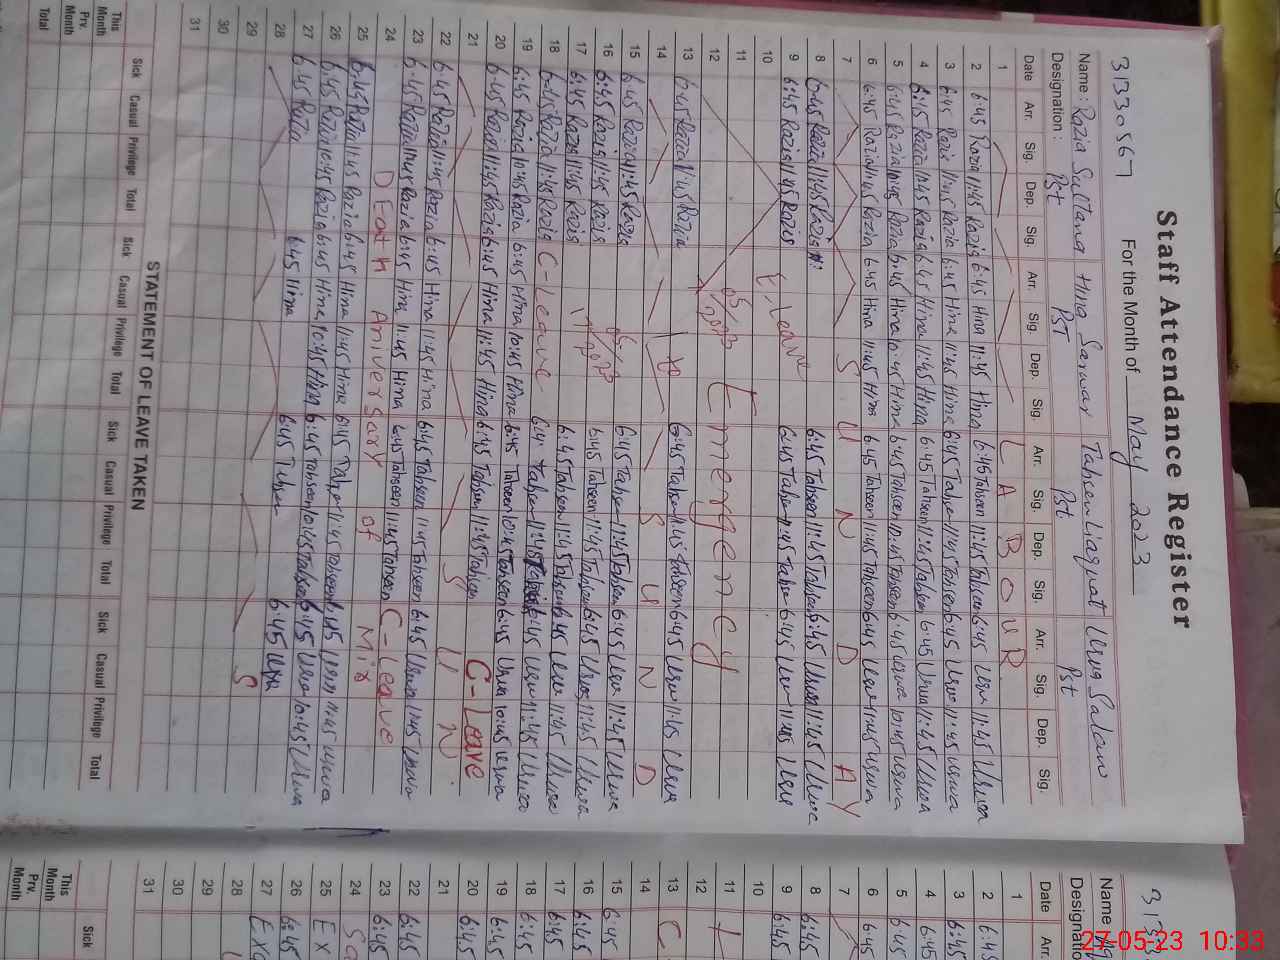 31330567
Staff Attendance Register
For the Month of May 2023
Name: Razia Sultana Hina Sarwar Tahseen Liaquat Urwa Salam
Designation: Pst PST Pst Pst
Date Arr. Sig. Dep. Sig. Arr. Sig. Dep. Sig. Arr. Sig. Dep. Sig. Arr. Sig. Dep. Sig.
1 L A B O U R
2 6:45 Razia 11:45 Razia 6:45 Hina 11:45 Hina 6:45 Tahseen 11:45 Tahseen 6:45 Urwa 11:45 Urwa
3 6:45 Razia 11:45 Razia 6:45 Hina 11:45 Hina 6:45 Tahseen 11:45 Tahseen 6:45 Urwa 11:45 Urwa
4 6:45 Razia 11:45 Razia 6:45 Hina 11:45 Hina 6:45 Tahseen 11:45 Tahseen 6:45 Urwa 11:45 Urwa
5 6:45 Razia 10:45 Razia 6:45 Hina 10:45 Hina 6:45 Tahseen 10:45 Tahseen 6:45 Urwa 10:45 Urwa
6 6:45 Razia 11:45 Razia 6:45 Hina 11:45 Hina 6:45 Tahseen 11:45 Tahseen 6:45 Urwa 11:45 Urwa
7 S U N D A Y
8 6:45 Razia 11:45 Razia 6:45 Tahseen 11:45 Tahseen 6:45 Urwa 11:45 Urwa
9 6:45 Razia 11:45 Razia E. Leave 6:45 Tahseen 11:45 Tahseen 6:45 Urwa 11:45 Urwa
10
11 Emergency
12
13 6:45 Razia 11:45 Razia 6:45 Tahseen 11:45 Tahseen 6:45 Urwa 11:45 Urwa
14 S U N D
15 6:45 Razia 11:45 Razia 6:45 Tahseen 11:45 Tahseen 6:45 Urwa 11:45 Urwa
16 6:45 Razia 11:45 Razia 6:45 Tahseen 11:45 Tahseen 6:45 Urwa 11:45 Urwa
17 6:45 Razia 11:45 Razia 6:45 Tahseen 11:45 Tahseen 6:45 Urwa 11:45 Urwa
18 6:45 Razia 11:45 Razia C-Leave 6:45 Tahseen 11:45 6:45 Urwa 11:45 Urwa
19 6:45 Razia 10:45 Razia 6:45 Hina 10:45 Hina 6:45 Tahseen 10:45 Tahseen 6:45 Urwa 10:45 Urwa
20 6:45 Razia 11:45 Razia 6:45 Hina 11:45 Hina 6:45 Tahseen 11:45 Tahseen C-Leave
21 S U N
22 6:45 Razia 11:45 Razia 6:45 Hina 11:45 Hina 6:45 Tahseen 11:45 Tahseen 6:45 Urwa 11:45 Urwa
23 6:45 Razia 11:45 Razia 6:45 Hina 11:45 Hina 6:45 Tahseen 11:45 Tahseen C-Leave
24 DEath Aniversary of Mix
25 6:45 Razia 11:45 Razia 6:45 Hina 11:45 Hina 6:45 11:45 Tahseen 6:45 Urwa 11:45 Urwa
26 6:45 Razia 10:45 Razia 6:45 Hina 10:45 Hina 6:45 Tahseen 10:45 Tahseen 6:45 Urwa 10:45 Urwa
27 6:45 Razia 6:45 Hina 6:45 Tahseen 6:45 Urwa
28 S
29
30
31
STATEMENT OF LEAVE TAKEN
Sick Casual Privilege Total Sick Casual Privilege Total Sick Casual Privilege Total Sick Casual Privilege Total
This Month
Prv. Month
Total
Name
Designatio
Date Arr.
1
2 6:45
3 6:45
4 6:45
5 6:45
6 6:45
7
8 6:45
9 6:45
10
11
12
13 C
14
15 6:45
16 6:45
17 6:45
18 6:45
19 6:45
20 6:45
21
22 6:45
23 6:45
24
25 EX
26 6:45
27
28
29
30
31
Sick
This Month
Prv. Month
27-05-23 10:33